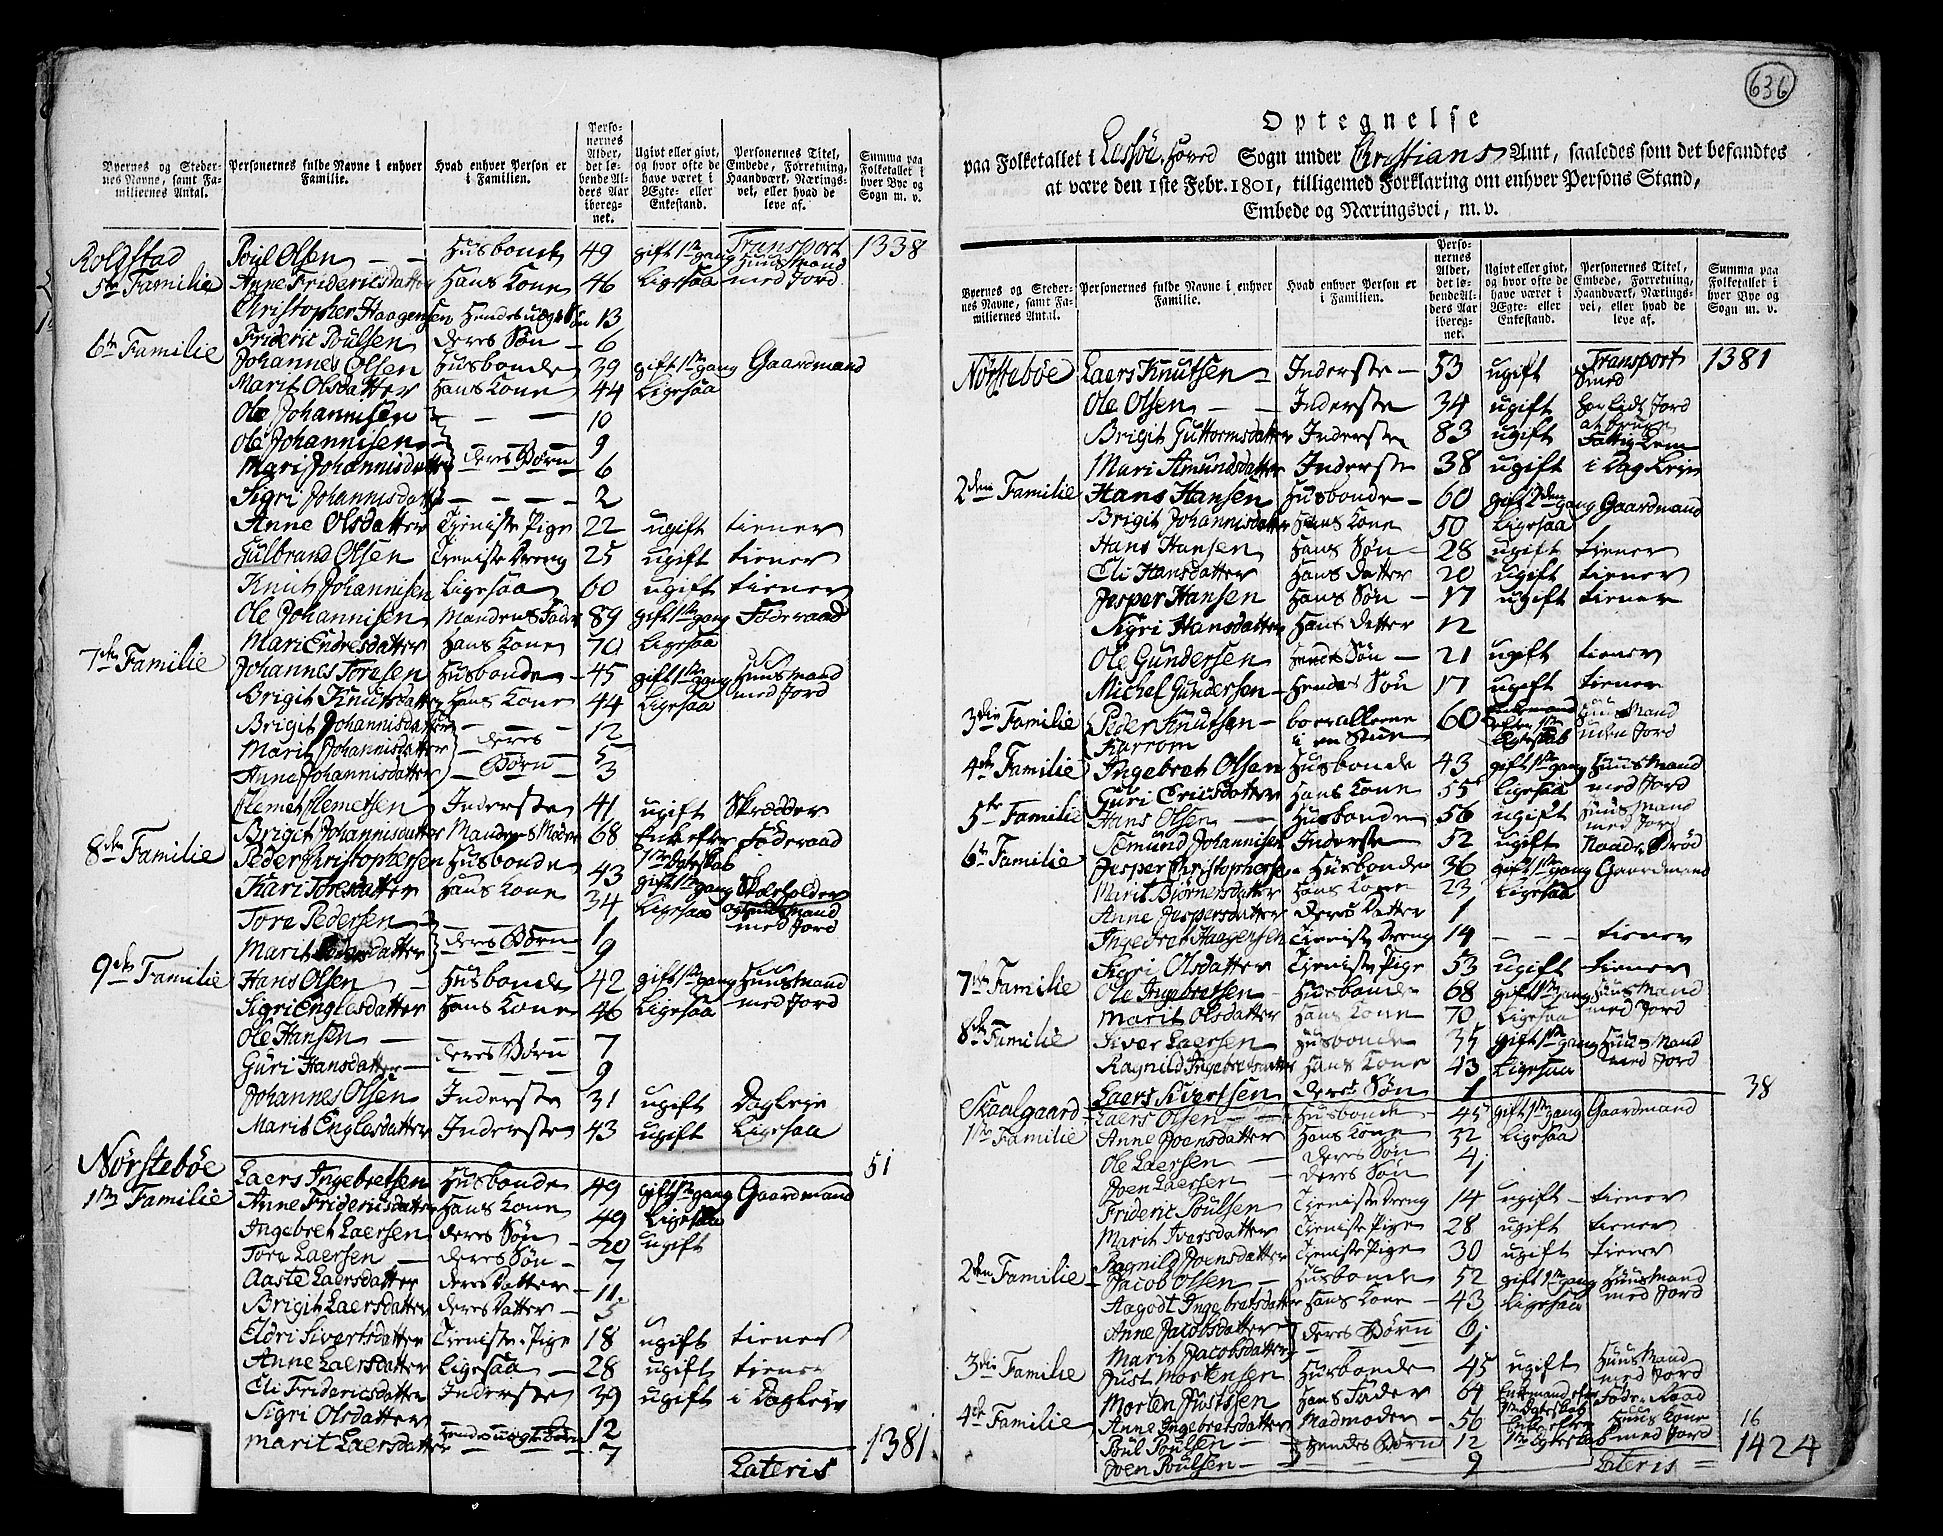 Byernes og Stedernes Navne, samt Familiernes Antal.
Personernes fulde Navne i enhver Familie.
Hvad enhver Person er i Familien.
Personernes Alder, det løbende Alders Aar iberegnet.
Ugivt eller givt, og hvor ofte de have været i Ægte- eller Enkestand.
Personernes Titel, Embede, Forretning, Haandværk, Næringsvei, eller hvad de leve af.
Summa paa Folketallet i hver Bye og Sogn m. v.
Transport 1338
Rolgstad Poul Olsen Husbonde 49 gift 1ste gang Huusmand
5te Familie Anne Fridericsdatter Hans Kone 46 Ligesaa med Jord
Christopher Haagensen Hendes uægte Søn 13
Frideric Poulsen deres Søn 6
6te Familie Johannes Olsen Husbonde 39 gift 1ste gang Gaardmand
Marit Olsdatter Hans Kone 44 Ligesaa
Ole Johannisen 10
Ole Johannisen 9
Mari Johannisdatter deres Børn 6
Sigri Johannisdatter 2
Anne Olsdatter Tjeniste Pige 22 ugift tiener
Gulbrand Olsen Tjeniste Dreng 25 ugift tiener
Knut Johannisen Ligesaa 60 ugift tiener
Ole Johannisen Mandens Fader 89 gift 1ste gang Føderaad
Mari Endresdatter Hans Kone 70 Ligesaa
7de Familie Johannes Toresen Husbonde 45 gift 1ste gang Huusmand
Brigit Knutsdatter Hans Kone 44 Ligesaa med Jord
Brigit Johannisdatter 12
Marit Johannisdatter deres 5
Anne Johannisdatter Børn 3
Clemet Clemetsen Inderste 41 ugift Skrædder
Brigit Johannisdatter Mandens Moder 68 Enke efter Føderaad
8de Familie Peder Christophersen Husbonde 43 1ste Ægteskab gift 1ste gang Skoleholder
Kari Toresdatter Hans Kone 34 Ligesaa og Huusmand
Tore Pedersen 1 med Jord
Marit Pedersdatter deres Børn 9
9de Familie Hans Olsen Husbonde 42 gift 1ste gang Huusmand
Sigri Englesdatter Hans Kone 46 Ligesaa med Jord
Ole Hansen 7
Guri Hansdatter deres Børn 9
Johannes Olsen Inderste 31 ugift Dagleie
Marit Englesdatter Inderste 43 ugift Ligesaa
51
Nørstebøe
1ste Familie Laers Ingebretsen Husbonde 49 gift 1ste gang Gaardmand
Anne Fridericsdatter Hans Kone 49 Ligesaa
Ingebret Laersen deres Søn 20 ugift
Tore Laersen deres Søn 7
Aaste Laersdatter deres Datter 11
Brigit Laersdatter deres Datter 5
Eldri Sivertsdatter Tjeniste Pige 18 ugift tiener
Anne Laersdatter Ligesaa 28 ugift tiener
Eli Fridericsdatter Inderste 39 ugift i Dagleie
Sigri Olsdatter 12
Marit Laersdatter Hendes uægte Børn 7
Lateris 1381
636
Optegnelse
paa Folketallet i Lessøe Hoved Sogn under Christians Amt, saaledes som det befandtes
at være den 1ste Febr. 1801, tilligemed Forklaring om enhver Persons Stand,
Embede og Næringsvei, m. v.
Byernes og Stedernes Navne, samt Familiernes Antal.
Personernes fulde Navne i enhver Familie.
Hvad enhver Person er i Familien.
Personernes Alder, det løbende Alders Aar iberegnet.
Ugivt eller givt, og hvor ofte de have været i Ægte- eller Enkestand.
Personernes Titel, Embede, Forretning, Haandværk, Næringsvei, eller hvad de leve af.
Summa paa Folketallet i hver Bye og Sogn m. v.
Transport 1381
Nørstebøe Laers Knutsen Inderste 53 ugift Smed
Ole Olsen Inderste 34 ugift har lidt Jord at bruge
Brigit Guttormsdatter Inderste 83 ugift Fattig Lem
Mari Amundsdatter Inderste 38 ugift i Dagleie
2den Familie Hans Hansen Husbonde 60 gift 2den gang Gaardmand
Brigit Johannisdatter Hans Kone 50 Ligesaa
Hans Hansen Hans Søn 28 ugift tiener
Eli Hansdatter Hans Datter 20 ugift tiener
Jesper Hansen Hans Søn 17 ugift tiener
Sigri Hansdatter Hans Datter 12
Ole Gundersen Hendes Søn 21 ugift tiener
Michel Gundersen Hendes Søn 17 ugift tiener
3die Familie Peder Knutsen boer alleene 60 Enkemand efter 1ste Huusmand
Karrom i en Stue Egteskab uden Jord
4de Familie Ingebret Olsen Husbonde 43 gift 1ste gang Huusmand
Guri Ericsdatter Hans Kone 55 Ligesaa med Jord
5te Familie Hans Olsen Husbonde 56 ugift Huusmand med Jord
Semund Johannisen Inderste 52 ugift Naade Brød
6te Familie Jesper Christophersen Husbonde 36 gift 1ste gang Gaardmand
Marit Bjørnersdatter Hans Kone 23 Ligesaa
Anne Jespersdatter deres Datter 1
Ingebret Haagensen Tjeniste Dreng 14 tiener
Sigri Olsdatter Tjeniste Pige 53 ugift tiener
7de Familie Ole Ingebretsen Husbonde 68 gift 1ste gang Huusmand
Marit Olsdatter Hans Kone 70 Ligesaa med Jord
8de Familie Siver Laersen Husbonde 35 gift 1ste gang Huusmand
Ragnild Ingebretsdatter Hans Kone 43 Ligesaa med Jord
Laers Sivertsen deres Søn 1
38
Skaalgaard Laers Olsen Husbonde 45 gift 1ste gang Gaardmand
1ste Familie Anne Joensdatter Hans Kone 32 Ligesaa
Ole Laersen deres Søn 4
Joen Laersen deres Søn 1
Frideric Poulsen Tjeniste Dreng 14 ugift tiener
Marit Iversdatter Tjeniste Pige 28 ugift tiener
Ragnild Joensdatter Tjeniste Pige 30 ugift tiener
2den Familie Jacob Olsen Husbonde 52 gift 1ste gang Huusmand
Aagodt Ingebretsdatter Hans Kone 43 Ligesaa med Jord
Anne Jacobsdatter deres Børn 6
Marit Jacobsdatter 1
3die Familie Just Mortensen Husbonde 45 ugift Huusmand med Jord
Morten Justsen Hans Fader 64 Enkemand efter 1ste Egteskab Føde Raad
4de Familie Anne Ingebretsdatter Madmoder 56 Enke efter Huus Kone
Poul Poulsen Hendes Børn 12 1ste Egteskab med Jord
Joen Poulsen 9
16
Lateris 1424